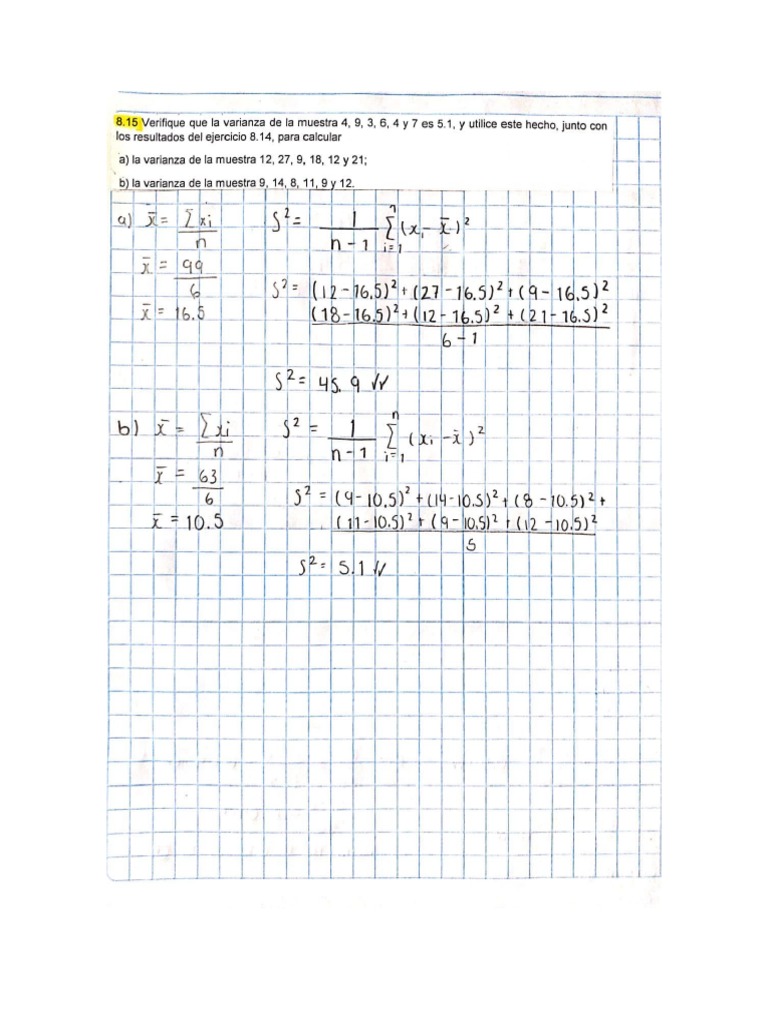 8.15 Verifique que la varianza de la muestra 4, 9, 3, 6, 4 y 7 es 5.1, y utilice este hecho, junto con
los resultados del ejercicio 8.14, para calcular
a) la varianza de la muestra 12, 27, 9, 18, 12 y 21;
b) la varianza de la muestra 9, 14, 8, 11, 9 y 12.
a) x̄ = Σxi / n    S² = 1/(n-1) Σ_{i=1}^{n} (xi - x̄)²
x̄ = 99/6
x̄ = 16.5
S² = (12-16.5)² + (27-16.5)² + (9-16.5)²
(18-16.5)² + (12-16.5)² + (21-16.5)²
6-1
S² = 45.9
b) x̄ = Σxi / n    S² = 1/(n-1) Σ_{i=1}^{n} (xi - x̄)²
x̄ = 63/6
x̄ = 10.5
S² = (9-10.5)² + (14-10.5)² + (8-10.5)² +
(11-10.5)² + (9-10.5)² + (12-10.5)²
5
S² = 5.1